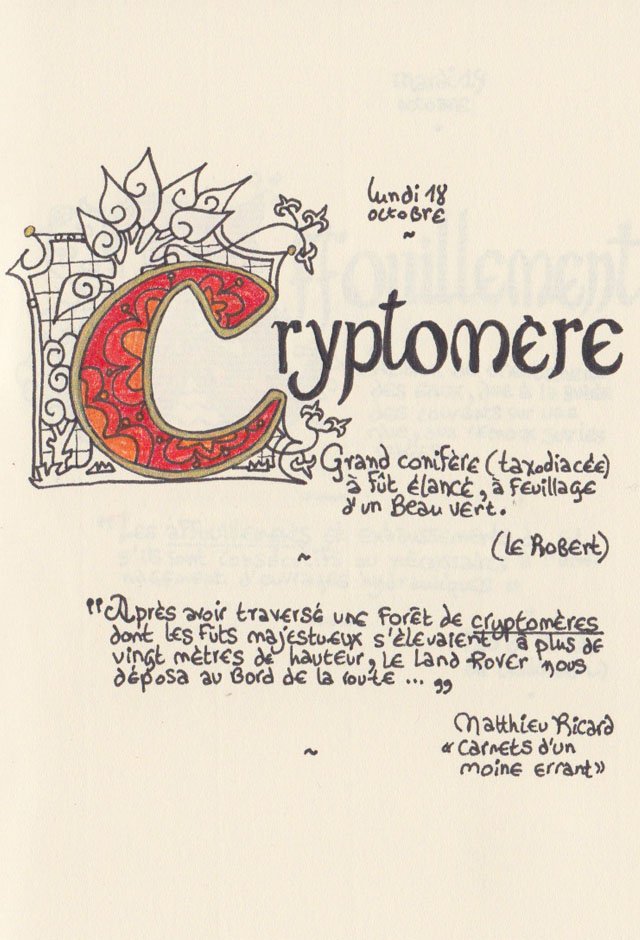 lundi 18
octobre
~
Cryptomère
Grand conifère (taxodiacée)
à fût élancé, à feuillage
d'un beau vert.
(Le Robert)
~
"Après avoir traversé une forêt de cryptomères
dont les fûts majestueux s'élevaient à plus de
vingt mètres de hauteur, le Land Rover nous
déposa au bord de la route ... "
Matthieu Ricard
« carnets d'un
moine errant »
~